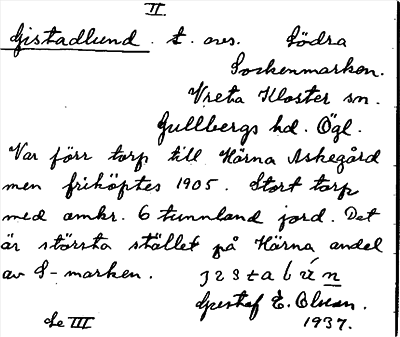 II.
Gistadlund. t. avs. Södra
Sockenmarken.
Vreta Kloster sn.
Gullbergs hd. Ögl.
Var förr torp till Härna Askegård
men friköptes 1905. Stort torp
med omkr. 6 tunnland jord. Det
är största stället på Härna andel
av S-marken.
Gustaf E. Olsson.
Se III 1937.